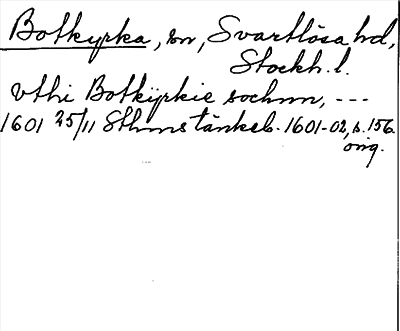 Botkyrka, sn, Svartlösa hd,
Stockh. l.
vthi Botkÿrkie sochnn, ---
1601 25/11 Sthms tänkeb. 1601-02, s. 156.
orig.